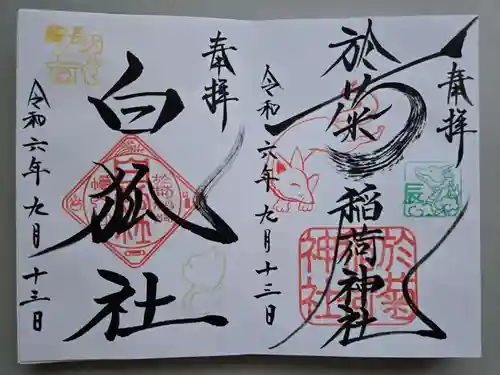 奉拝
於菊稲荷神社
令和六年九月十三日
辰
於菊稲荷神社
奉拝
白狐社
令和六年九月十三日